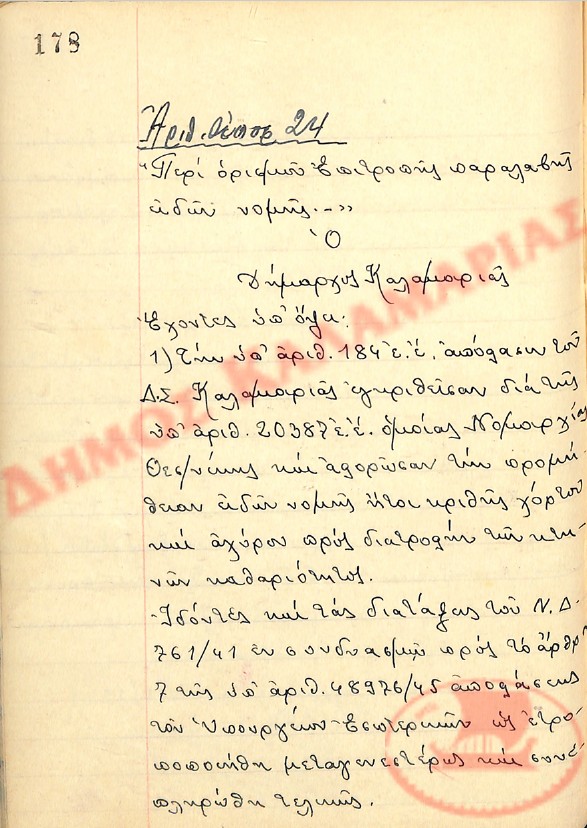 178
Ἀριθ. 24
"Περί ὁρισμοῦ Ἐπιτροπῆς παραλαβῆς
εἰδῶν νομῆς.-"
Ὁ
Δήμαρχος Καλαμαριᾶς
Ἔχοντες ὑπ' ὄψει:
1) Τήν ὑπ' ἀριθ. 184 ἐ.ἔ. ἀπόφασιν τοῦ
Δ.Σ. Καλαμαριᾶς ἐγκριθεῖσαν διά τῆς
ὑπ' ἀριθ. 20387 ἐ.ἔ. ὁμοίας Νομαρχίας
Θεσ/νίκης καί ἀφορῶσαν τήν προμή-
θειαν εἰδῶν νομῆς ἤτοι κριθῆς χόρτου
καί ἀχύρου πρός διατροφήν τῶν κτη-
νῶν καθαριότητος.
Ἰδόντες καί τάς διατάξεις τοῦ Ν.Δ.
761/41 ἐν συνδυασμῷ πρός τό ἄρθρ
7 τῆς ὑπ' ἀριθ. 48976/45 ἀποφάσεως
τοῦ Ὑπουργείου Ἐσωτερικῶν ὡς ἐτρο-
ποποιήθη μεταγενεστέρως καί συνε-
πληρώθη τελικῶς.
ΔΗΜΟΣ ΚΑΛΑΜΑΡΙΑΣ